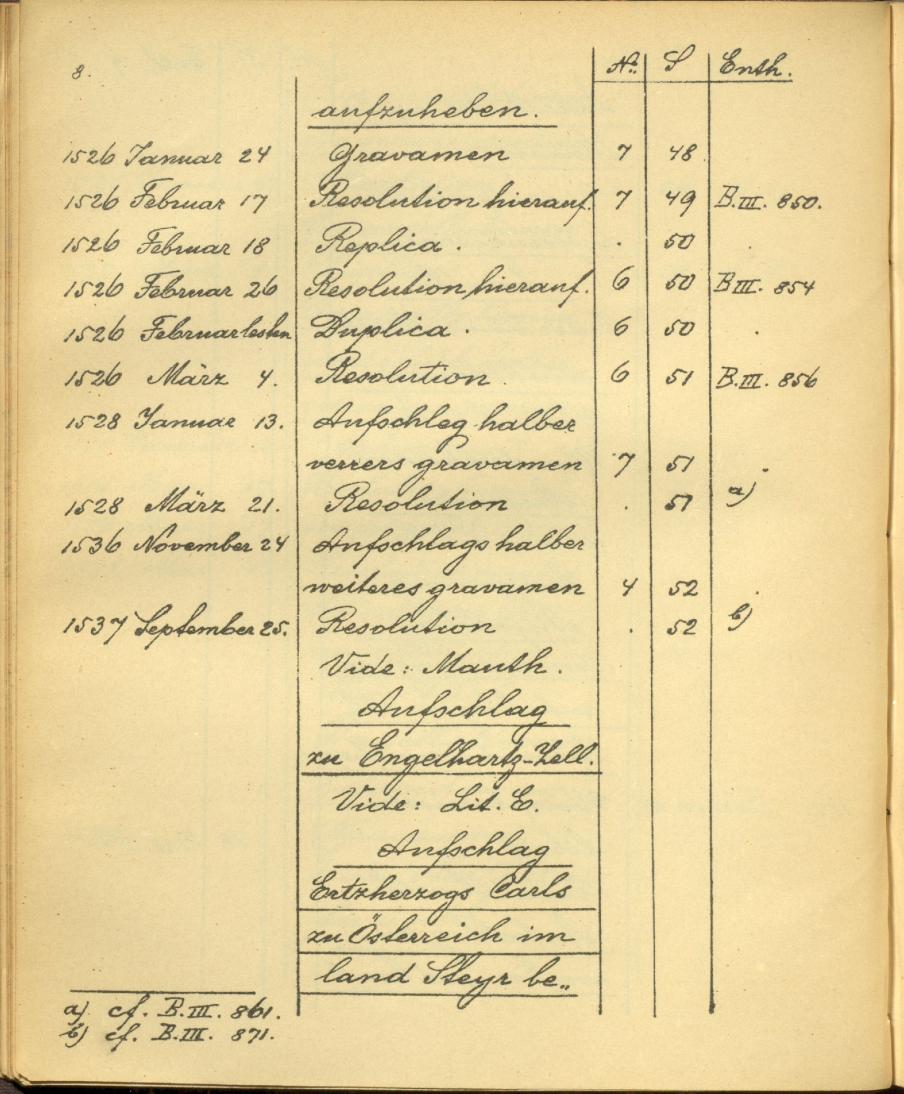 8.
Nº. S Enth.
aufzuheben.
1526 Januar 24 Gravamen 7 48
1526 Februar 17 Resolution hierauf. 7 49 B.III. 850.
1526 Februar 18 Replica . . 50 .
1526 Februar 26 Resolution hierauf. 6 50 B III. 854
1526 Februar lesten Duplica . 6 50 .
1526 März 4. Resolution 6 51 B.III. 856
1528 Januar 13. Aufschleg halber
verrers gravamen 7 51 .
1528 März 21. Resolution . 51 a)
1536 November 24 Aufschlags halber
weiteres gravamen 4 52 .
1537 September 25. Resolution . 52 b)
Vide: Mauth.
Aufschlag
zu Engelhartz-Zell.
Vide: Lit. E.
Aufschlag
Ertzherzogs Carls
zu Österreich im
land Steyr be„
a) cf. B.III. 861.
b) cf. B.III. 871.